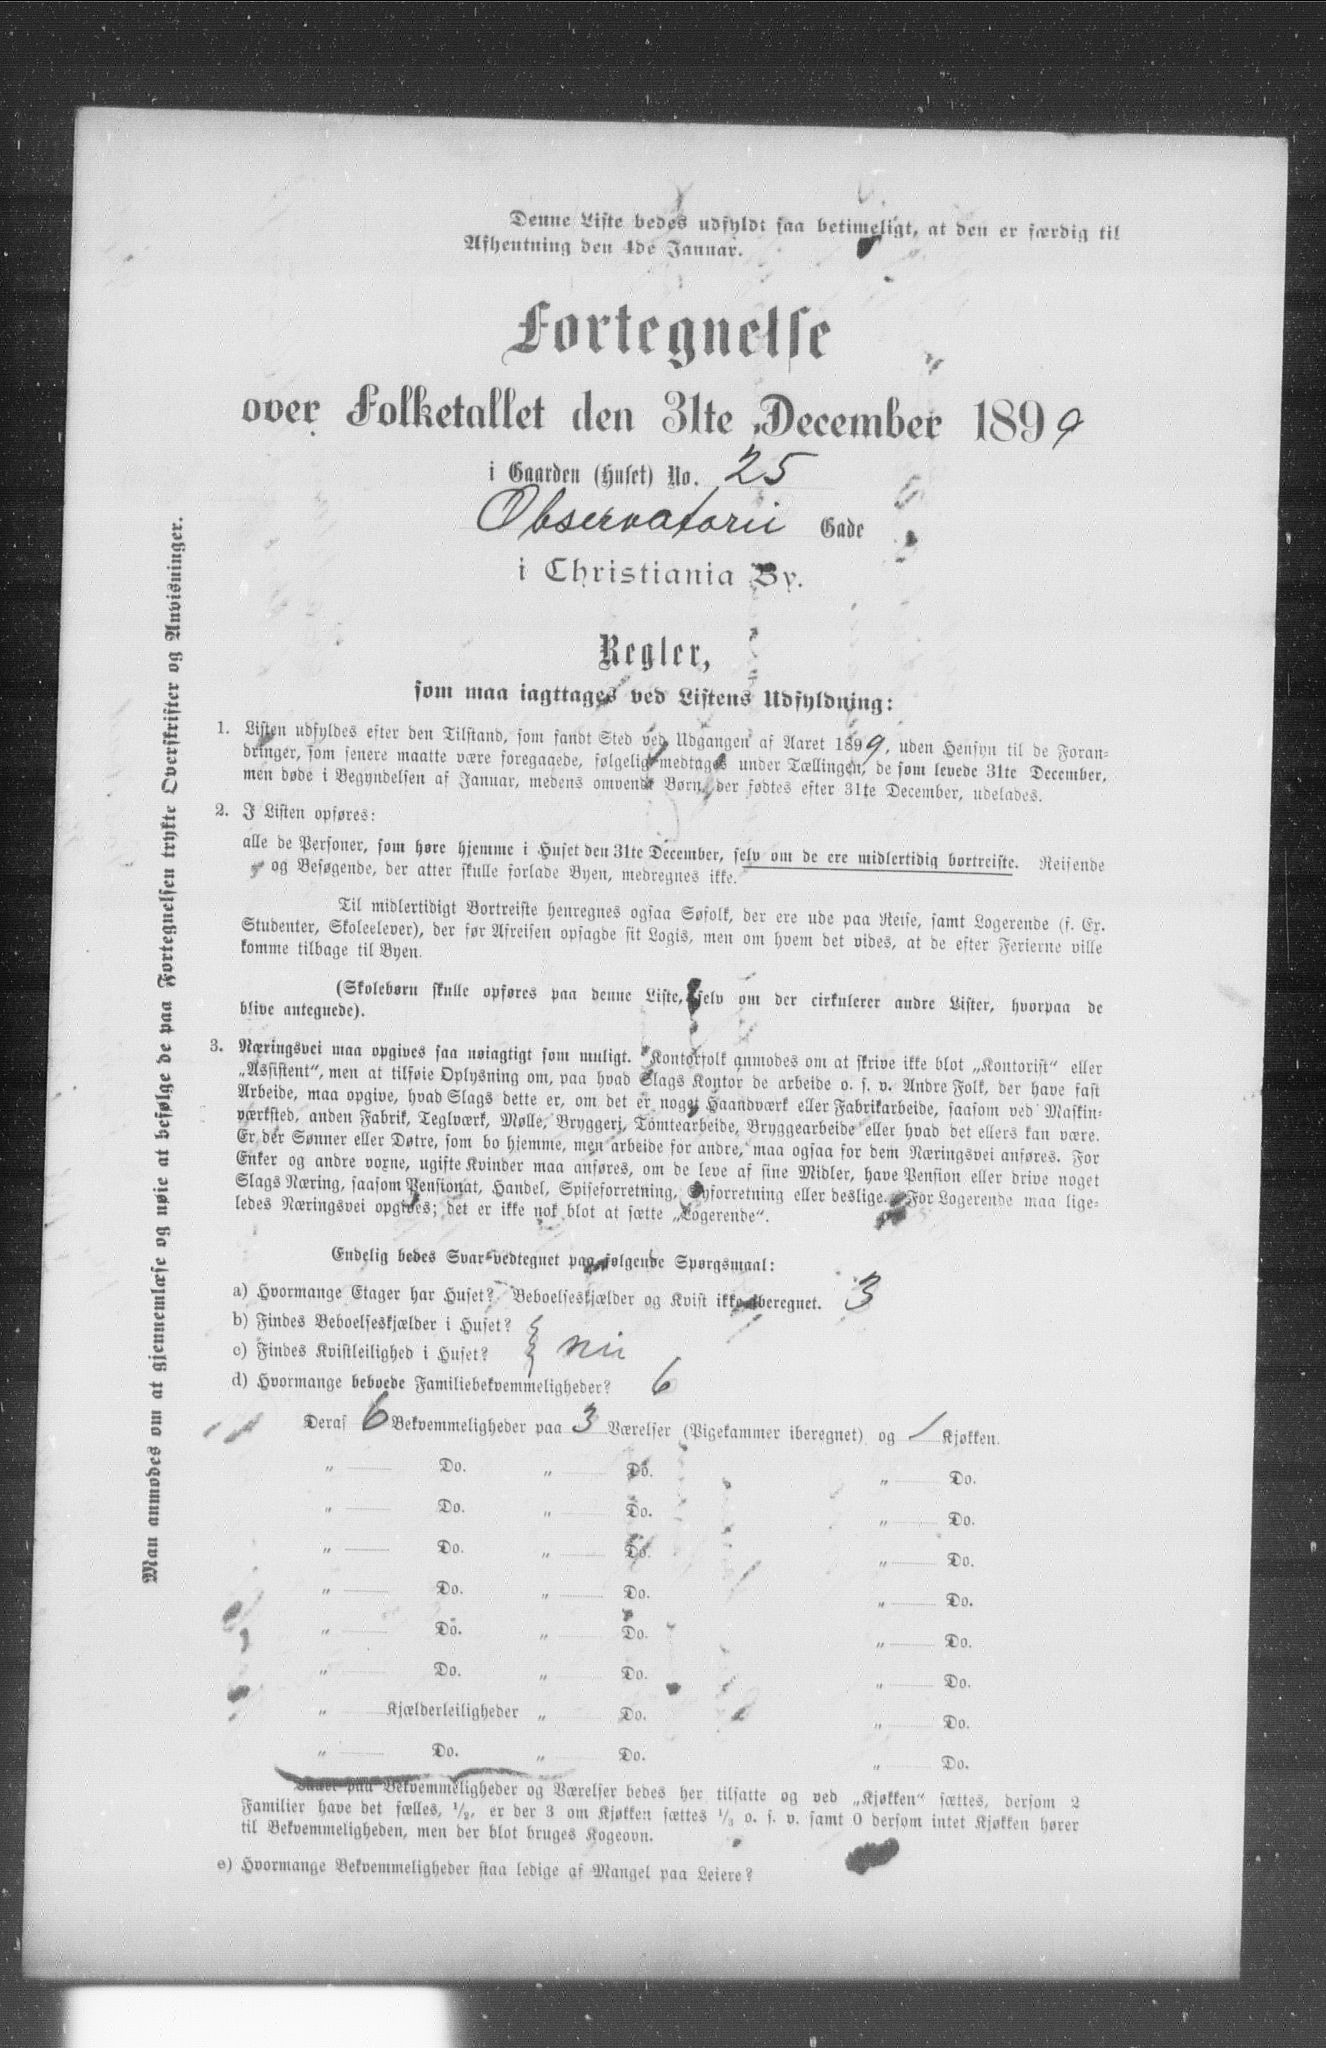 Denne Liste bedes udfyldt saa betimeligt, at den er færdig til
Afhentning den 4de Januar.
Fortegnelse
over Folketallet den 31te December 1899
i Gaarden (Huset) No. 25
Observatorii Gade
i Christiania By.
Regler,
som maa iagttages ved Listens Udfyldning:
1. Listen udfyldes efter den Tilstand, som fandt Sted ved Udgangen af Aaret 1899, uden Hensyn til de Foran-
dringer, som senere maatte være foregaaede, følgelig medtages under Tællingen, de som levede 31te December,
men døde i Begyndelsen af Januar, medens omvendt Børn, der fødtes efter 31te December, udelades.
2. I Listen opføres:
alle de Personer, som høre hjemme i Huset den 31te December, selv om de ere midlertidig bortreiste. Reisende
og Besøgende, der atter skulle forlade Byen, medregnes ikke.
Til midlertidigt Bortreiste henregnes ogsaa Søfolk, der ere ude paa Reise, samt Logerende (f. Ex.
Studenter, Skoleelever), der før Afreisen opsagde sit Logis, men om hvem det vides, at de efter Ferierne ville
komme tilbage til Byen.
(Skolebørn skulle opføres paa denne Liste, selv om der cirkulerer andre Lister, hvorpaa de
blive antegnede).
3. Næringsvei maa opgives saa nøiagtigt som muligt. Kontorfolk anmodes om at skrive ikke blot „Kontorist“ eller
„Assistent“, men at tilføie Oplysning om, paa hvad Slags Kontor de arbeide o. s. v. Andre Folk, der have fast
Arbeide, maa opgive, hvad Slags dette er, om det er noget Haandværk eller Fabrikarbeide, saasom ved Maskin-
værksted, anden Fabrik, Teglværk, Mølle, Bryggeri, Tomtearbeide, Bryggearbeide eller hvad det ellers kan være.
Er der Sønner eller Døtre, som bo hjemme, men arbeide for andre, maa ogsaa for dem Næringsvei anføres. For
Enker og andre voxne, ugifte Kvinder maa anføres, om de leve af sine Midler, have Pension eller drive noget
Slags Næring, saasom Pensionat, Handel, Spiseforretning, Syforretning eller deslige. For Logerende maa lige-
ledes Næringsvei opgives; det er ikke nok blot at sætte „Logerende“.
Endelig bedes Svar vedtegnet paa følgende Spørgsmaal:
a) Hvormange Etager har Huset? Beboelseskjælder og Kvist ikke iberegnet. 3
b) Findes Beboelseskjælder i Huset?
c) Findes Kvistleilighed i Huset?
d) Hvormange beboede Familiebekvemmeligheder? 6
Deraf 6 Bekvemmeligheder paa 3 Værelser (Pigekammer iberegnet) og 1 Kjøkken.
„ Do. „ Do. „ Do.
„ Do. „ Do. „ Do.
„ Do. „ Do. „ Do.
„ Do. „ Do. „ Do.
„ Do. „ Do. „ Do.
„ Do. „ Do. „ Do.
„ Kjælderleiligheder „ Do. „ Do.
„ Do. „ Do. „ Do.
paa Bekvemmeligheder og Værelser bedes her tilsatte og ved „Kjøkken“ sættes, dersom 2
Familier have det fælles, 1/2, er der 3 om Kjøkken sættes 1/3 o. s. v. samt 0 dersom intet Kjøkken hører
til Bekvemmeligheden, men der blot bruges Kogeovn.
e) Hvormange Bekvemmeligheder staa ledige af Mangel paa Leiere?
Man anmodes om at gjennemlæse og nøie at befølge de paa Fortegnelsen trykte Overskrifter og Anvisninger.